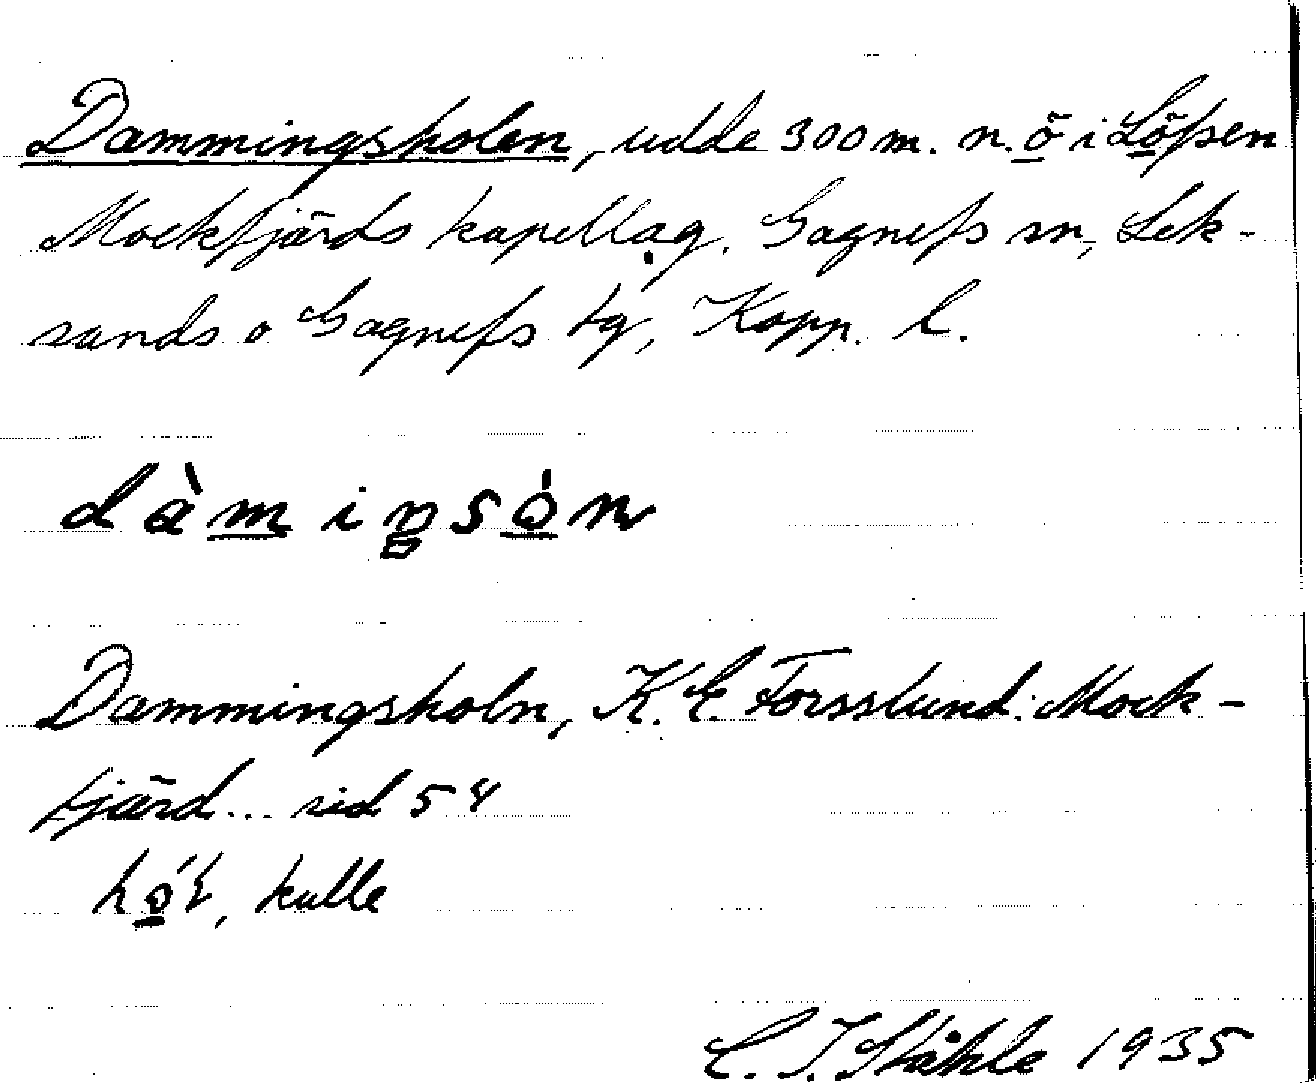 Dammingsholen, udde 300 m. n. ö i Löpsen
Mockfjärds kapellag. Gagnefs sn, Lek-
sands o Gagnefs tg, Kopp. l.
dàmiŋsòn
Dammingsholn, K. E. Forsslund: Mock-
fjärd... sid 54
kulle
C. I. Ståhle 1935